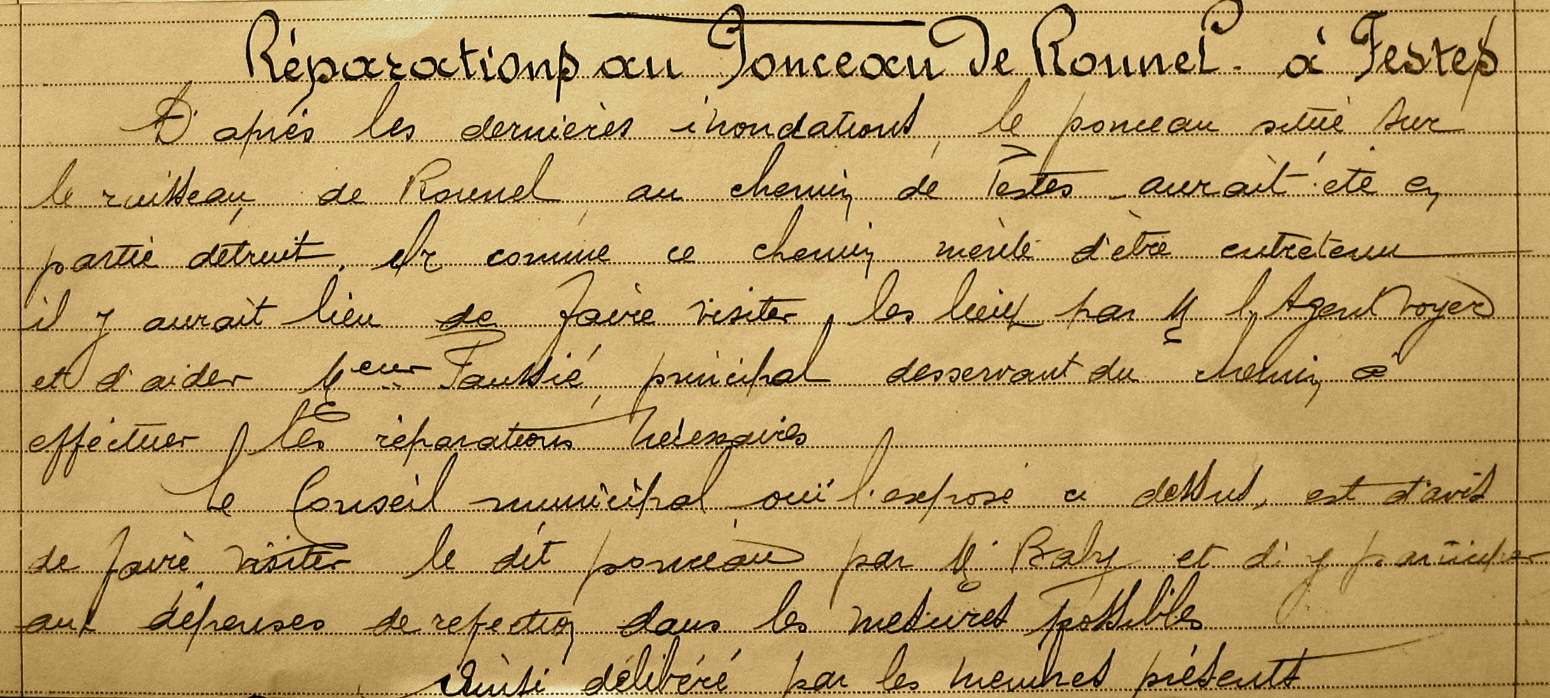 Réparations au Ponceau de Rounel. à Festes
D'après les dernières inondations, le ponceau situé sur
le ruisseau, de Rounel, au chemin de Festes aurait été en
partie détruit. Or comme ce chemin mérite d'être entretenu
il y aurait lieu de faire visiter les lieux par M l'Agent Voyer
et d'aider Meur Faussié, principal desservant du chemin, à
effectuer les réparations nécessaires
Le Conseil municipal ouï l'exposé ci dessus, est d'avis
de faire visiter le dit ponceau par M. Baby et d'y participer
aux dépenses de refection dans les mesures possibles
Ainsi délibéré par les membres présents